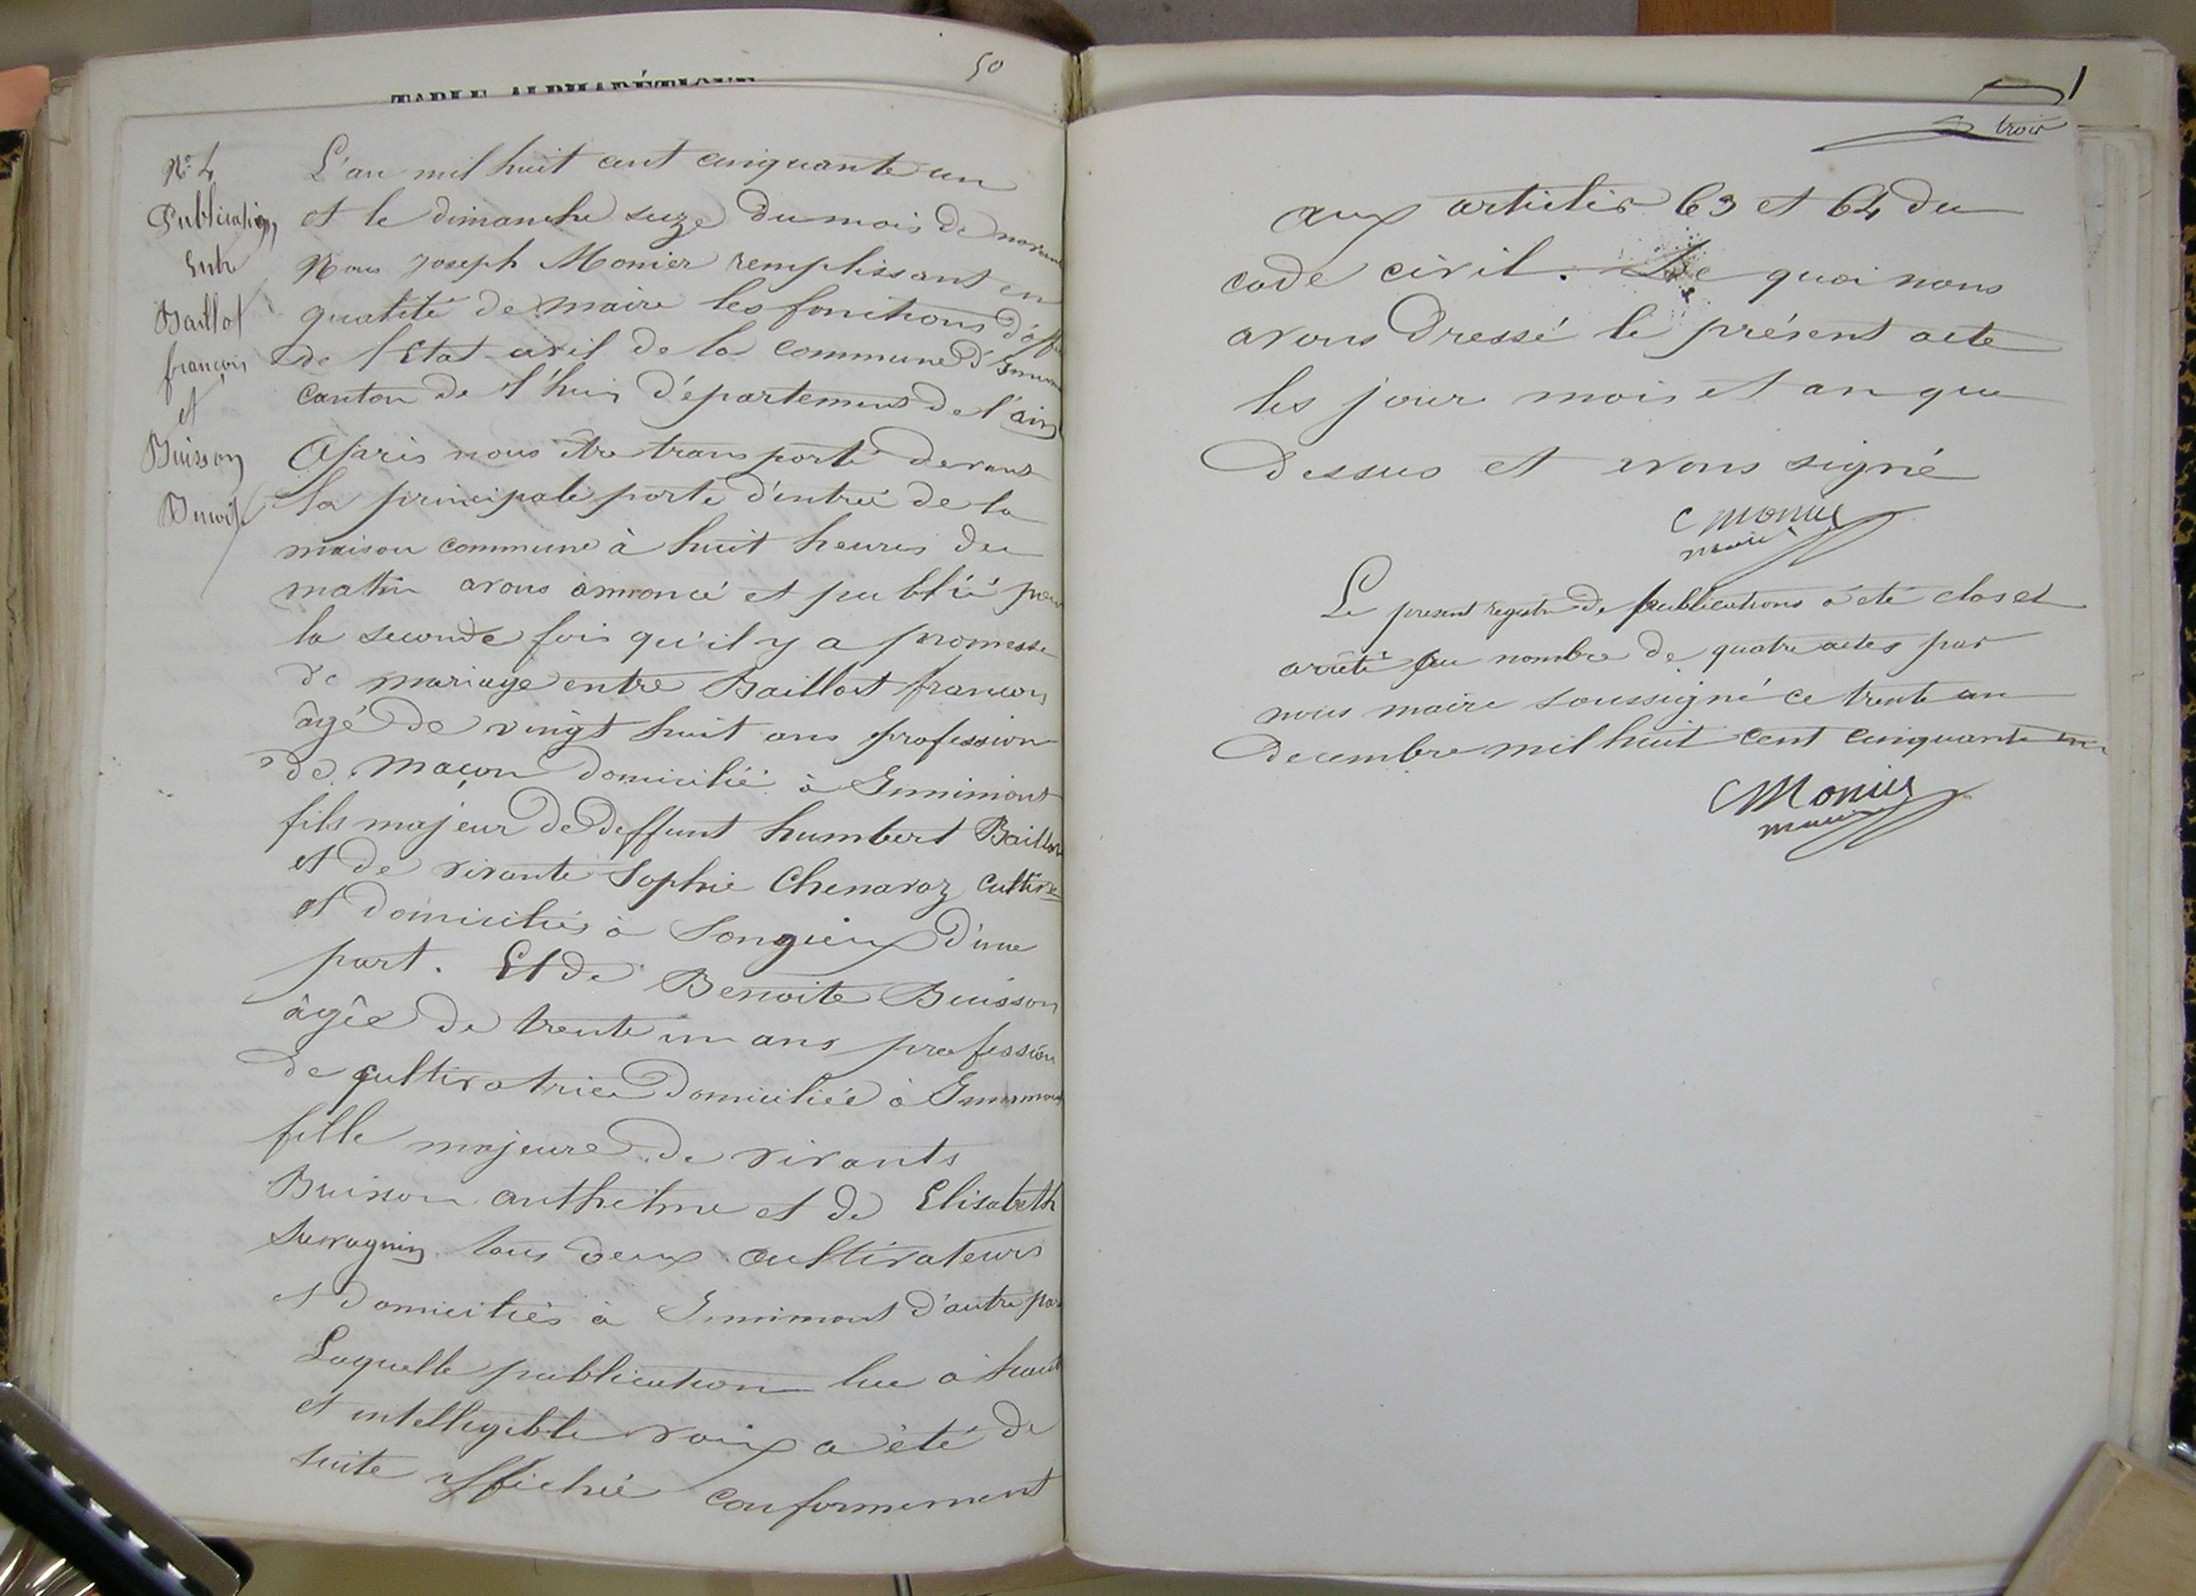 TABLE ALPHABÉTIQUE
50
N° 4
Publication
Entre
Baillot
françois
et
Buisson
Benoite
L'an mil huit cent cinquante un
et le dimanche seize du mois de novem
Nous joseph Monier remplissant en
qualité de maire les fonctions d'offi
de l'Etat civil de la commune d'
canton de l'huis département de l'ain
Après nous être transporté devant
la principale porte d'entrée de la
maison commune à huit heures du
matin avons annoncé et publié pour
la seconde fois qu'il y a promesse
de mariage entre Baillot françois
âgé de vingt huit ans profession
de maçon domicilié à Innimont
fils majeur de deffunt humbert Baillot
et de vivante Sophie Chenavaz cultiv
et domiciliés à Songieux d'une
part. Et de Benoite Buisson
âgée de trente un ans profession
de cultivatrice domiciliée à Innimont
fille majeure de vivants
Buisson anthelme et de Elisabeth
tous deux cultivateurs
et domiciliés à Innimont d'autre par
Laquelle publication lue à haute
et intelligible voix a été de
suite affichée conformement
trois
aux articles 63 et 64 du
code civil. De quoi nous
avons dressé le présent acte
les jour mois et an que
dessus et avons signé
Monier
maire
Le present registre de publications a été clos et
arrêté au nombre de quatre actes par
nous maire soussigné ce trente un
decembre mil huit cent cinquante un
Monier
maire